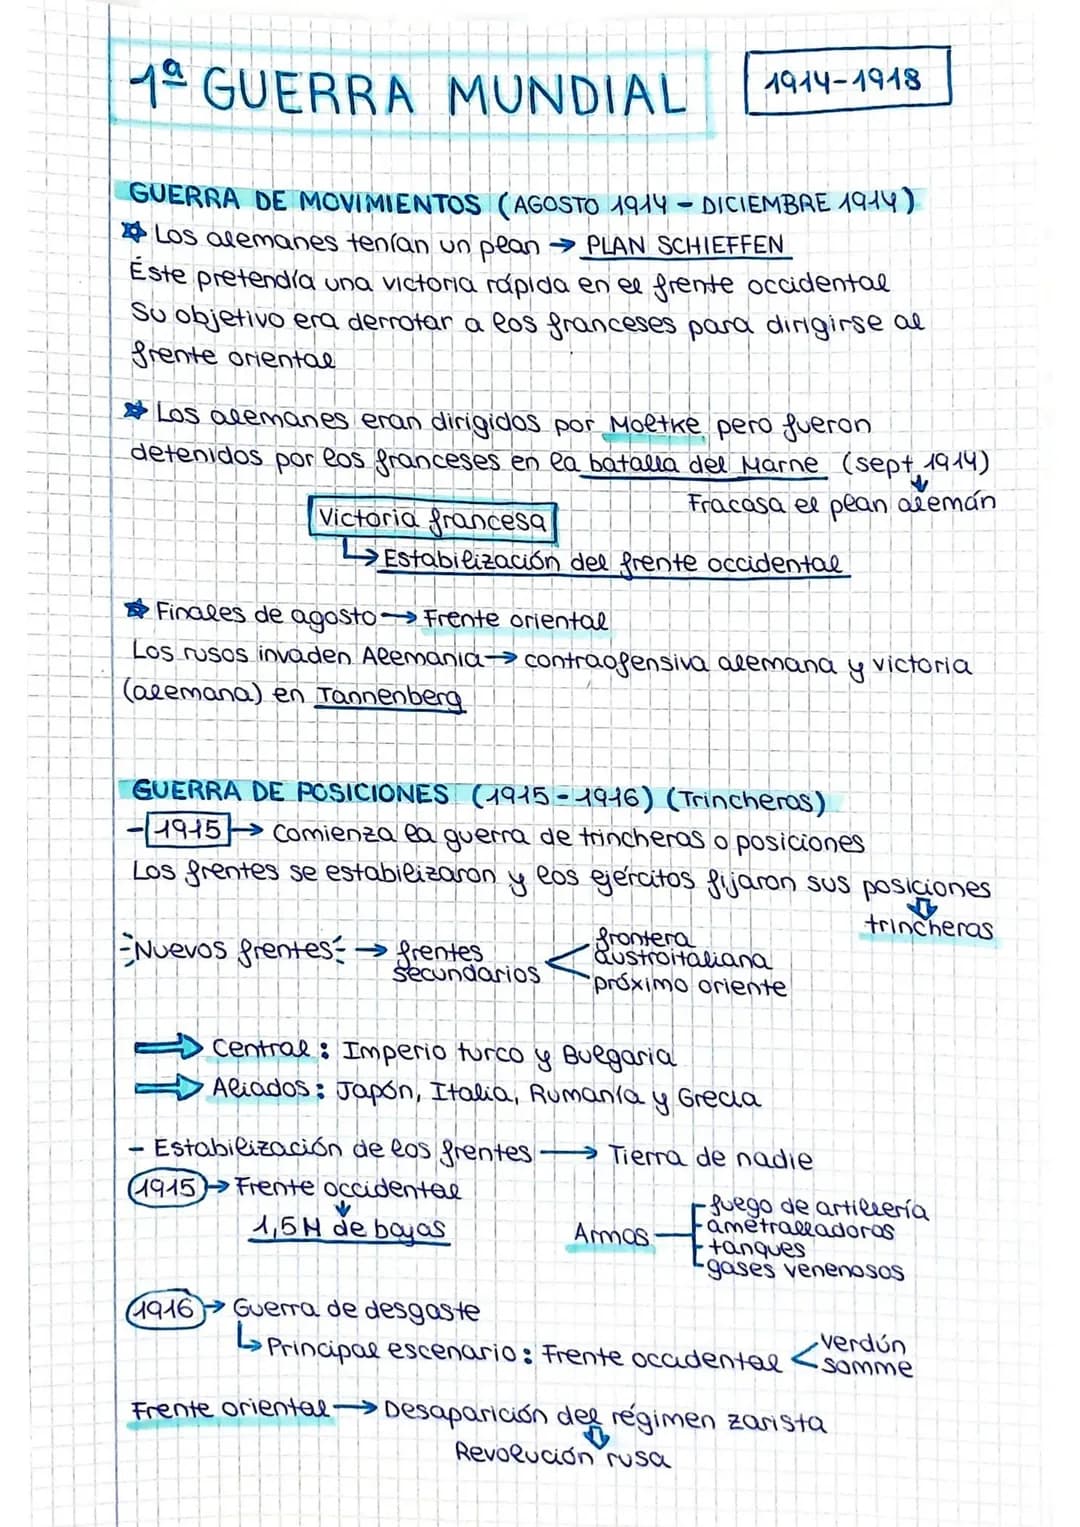 1ª GUERRA MUNDIAL
1914-1918
GUERRA DE MOVIMIENTOS (AGOSTO 1914 - DICIEMBRE 1914)
Los alemanes tenían un plan → PLAN SCHIEFFEN
Éste pretendía una victoria rápida en el frente occidental
Su objetivo era derrotar a los franceses para dirigirse al
frente oriental
Los alemanes eran dirigidos por Moltke pero fueron
detenidos por los franceses en la batalla del Marne (sept 1914)
Fracasa el plan alemán
Victoria francesa
Estabilización del frente occidental
Finales de agosto → Frente oriental
Los rusos invaden Alemania → contraofensiva alemana y victoria
(alemana) en Tannenberg
GUERRA DE POSICIONES (1915-1916) (Trincheras)
- 1915 → Comienza la guerra de trincheras o posiciones
Los frentes se estabilizaron y los ejércitos fijaron sus posiciones
trincheras
Nuevos frentes → frentes
secundarios
frontera
austroitaliana
próximo oriente
Central: Imperio turco y Bulgaria
Aliados: Japón, Italia, Rumanía y Grecia
- Estabilización de los frentes → Tierra de nadie
1915 → Frente occidental
1,5M de bajas
Armas
- fuego de artillería
- ametralladoras
- tanques
- gases venenosos
1916 → Guerra de desgaste
Principal escenario: Frente occidental
verdún
somme
Frente oriental → Desaparición del régimen zarista
Revolución rusa